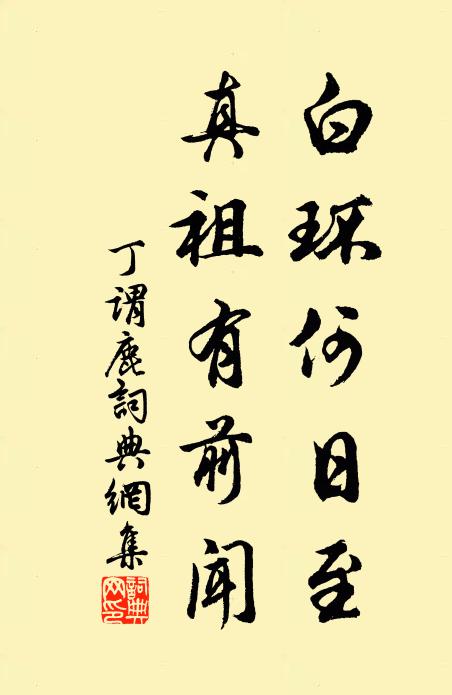 白环何日至
真祖有前闻
丁谓鹿詞典網集
詞典网印